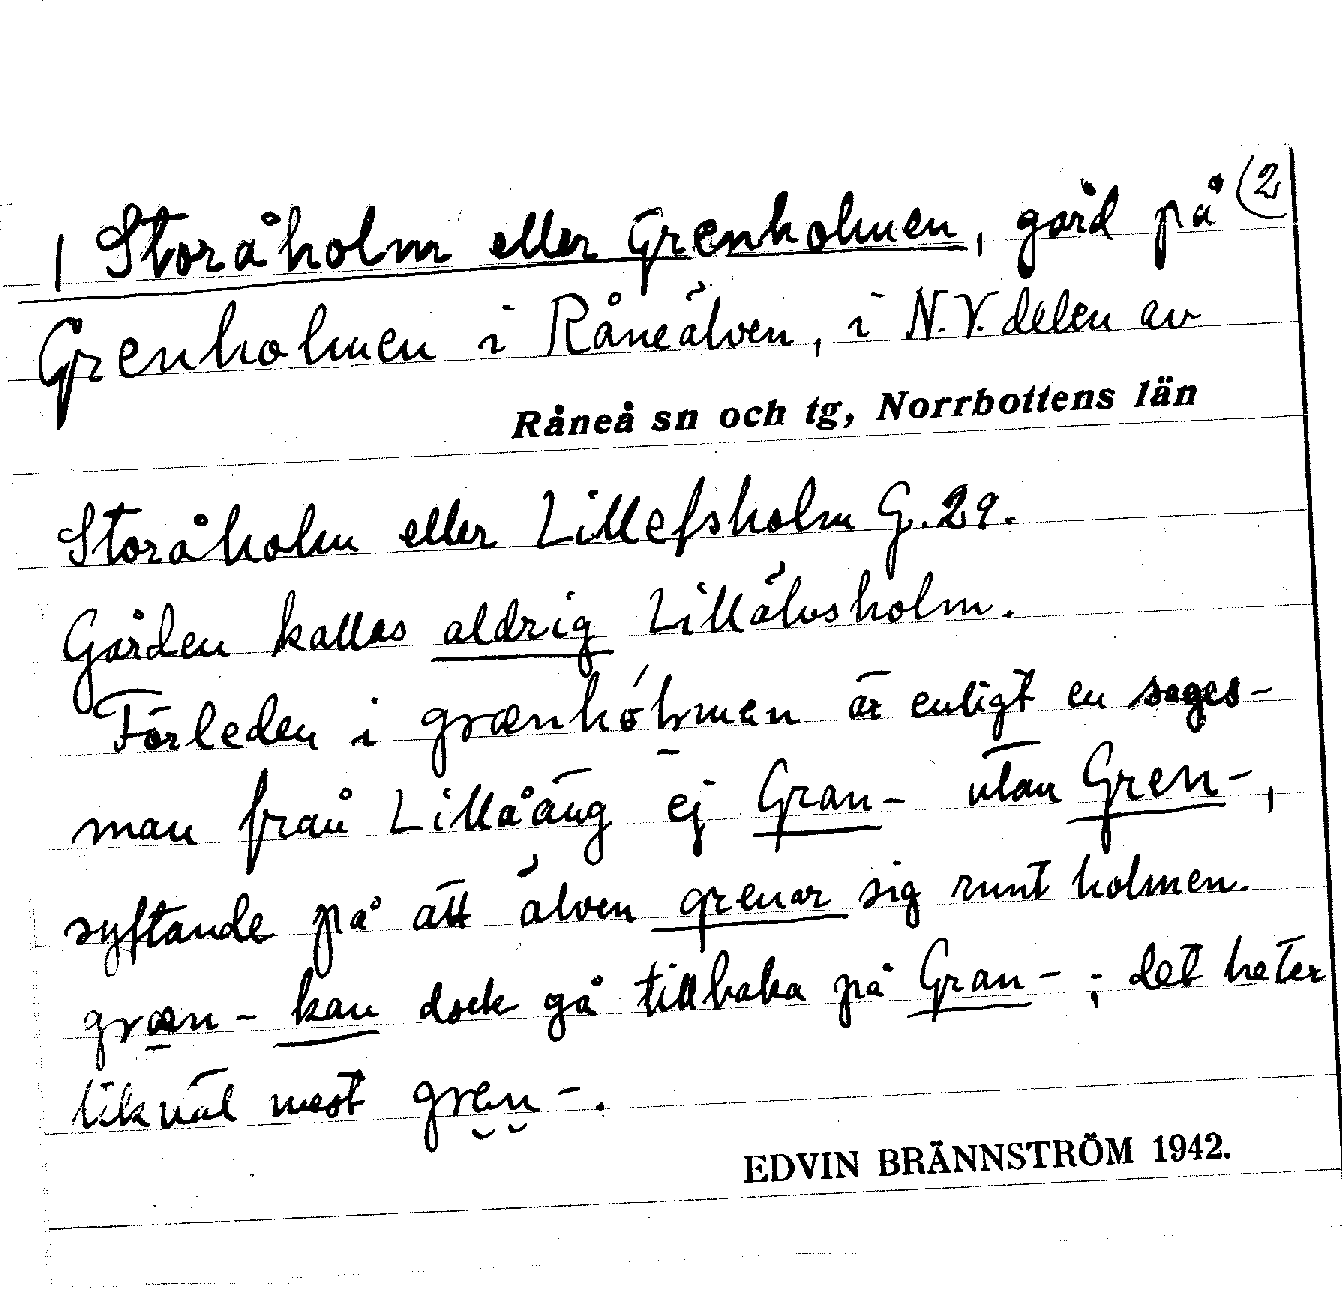 1 Storåholm eller Grenholmen, gård på (2
Grenholmen i Råneälven, i N.V. delen av
Råneå sn och tg, Norrbottens län
Storåholm eller Lillefsholm G. 29.
Gården kallas aldrig Lillälvsholm.
Förleden i grænhólmen är enligt en sages-
man från Lillåäng ej Gran- utan Gren-,
syftande på att älven grenar sig runt holmen.
græn- kan dock gå tillbaka på Gran-; det heter
likväl mest gren-.
EDVIN BRÄNNSTRÖM 1942.